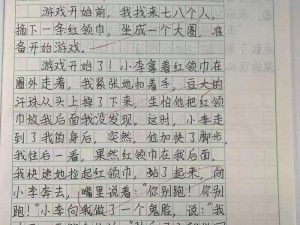 游戏开始前，我找来七八个人，
摘下一条红领巾，坐成一个大圈，准
备开始游戏。
游戏开始了！小李拿着红领巾在
圈外走着，我紧张地扣着手，豆大的
汗珠从头上掉了下来，生怕他把红领
巾放我后面我没发现，这时，小李走
到了我的身后，突然，他加快了脚步，
我往后一看，果然红领巾在我后面，
我快速地捡起红领巾，站了起来，向
小李奔去，嘴里说着："你别跑！你别
跑！"小李向我做了一个鬼脸，说："我